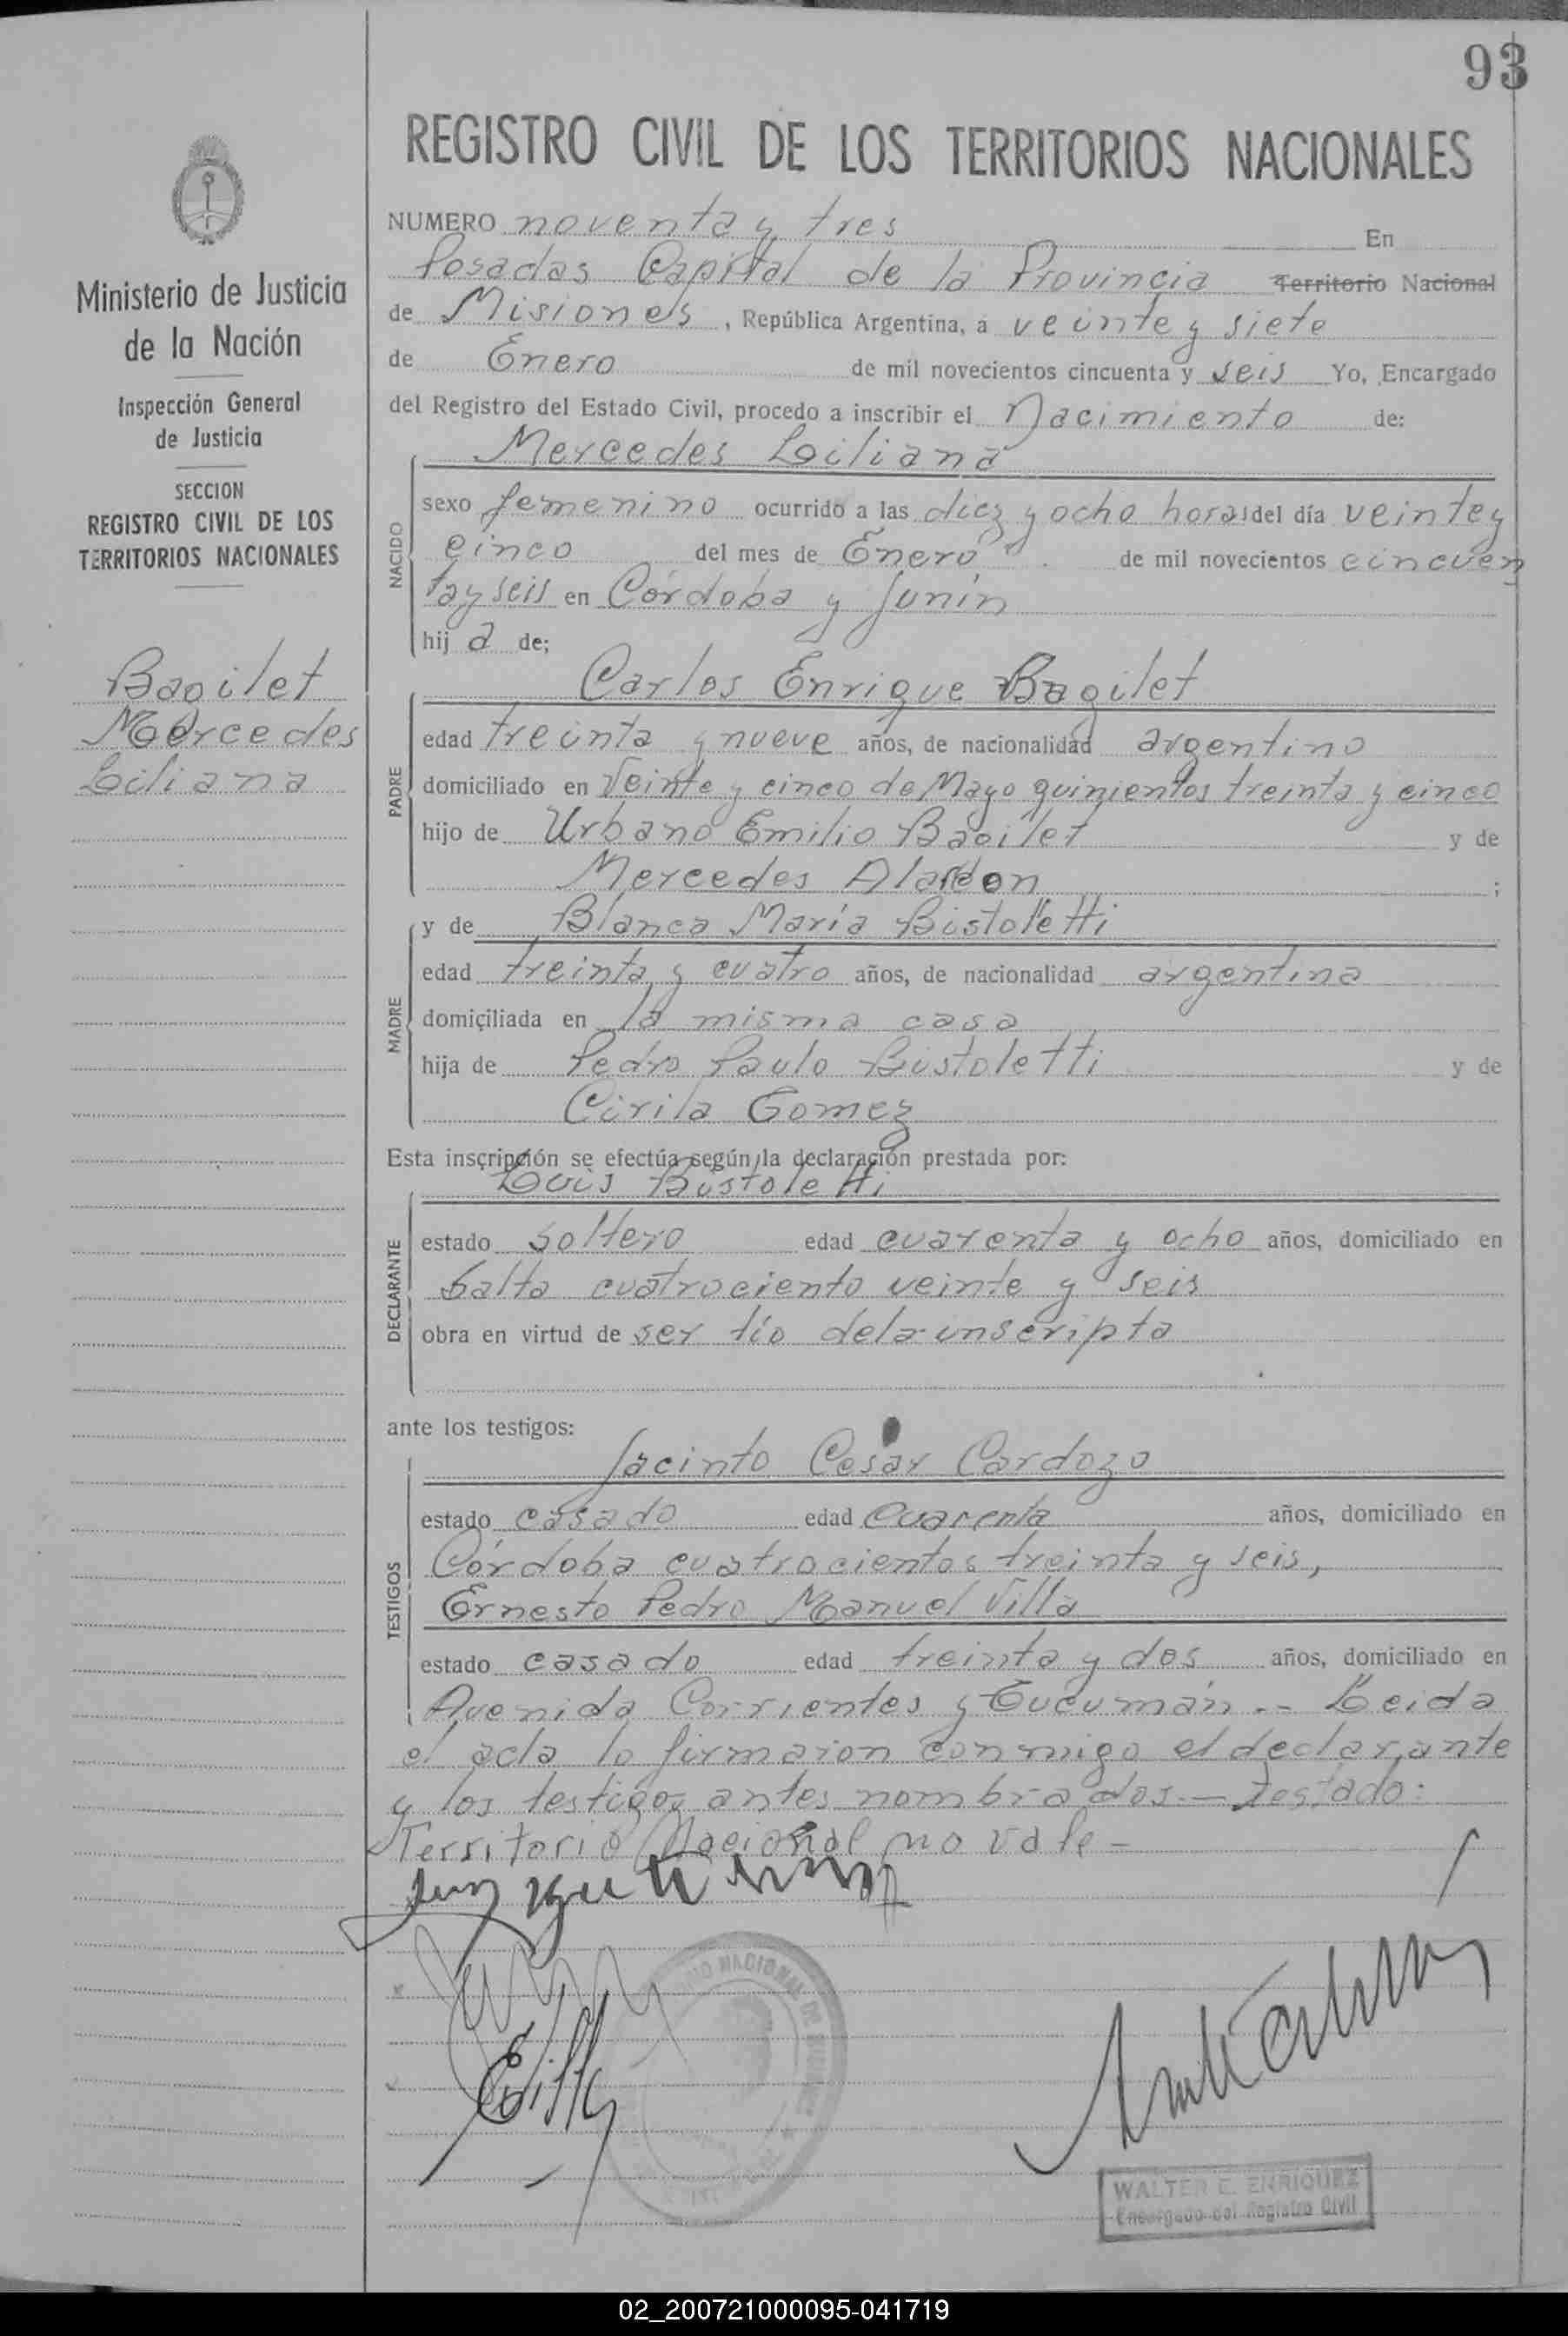 93
REGISTRO CIVIL DE LOS TERRITORIOS NACIONALES
Ministerio de Justicia
de la Nación
Inspección General
de Justicia
SECCION
REGISTRO CIVIL DE LOS
TERRITORIOS NACIONALES
Bagilet
Mercedes
Liliana
NUMERO noventa y tres En
Posadas Capital de la Provincia Territorio Nacional
de Misiones, República Argentina, a veinte y siete
de Enero de mil novecientos cincuenta y seis Yo, Encargado
del Registro del Estado Civil, procedo a inscribir el Nacimiento de:
Mercedes Liliana
NACIDO
sexo femenino ocurrido a las diez y ocho horas del día veinte y
cinco del mes de Enero de mil novecientos cincuen
ta y seis en Córdoba y Junín
hij a de;
Carlos Enrique Bagilet
PADRE
edad treinta y nueve años, de nacionalidad argentino
domiciliado en Veinte y cinco de Mayo quinientos treinta y cinco
hijo de Urbano Emilio Bagilet y de
Mercedes ;
y de Blanca María Bistoletti
MADRE
edad treinta y cuatro años, de nacionalidad argentina
domiciliada en la misma casa
hija de Pedro Paulo Bistoletti y de
Cirila Gomez
Esta inscripción se efectúa según la declaración prestada por:
Luis Bistoletti
DECLARANTE
estado soltero edad cuarenta y ocho años, domiciliado en
Salta cuatrociento veinte y seis
obra en virtud de ser tío de la inscripta
ante los testigos:
Jacinto Cesar Cardozo
TESTIGOS
estado casado edad Cuarenta años, domiciliado en
Córdoba cuatrocientos treinta y seis,
Ernesto Pedro Manuel Villa
estado casado edad treinta y dos años, domiciliado en
Avenida Corrientes y Tucumán.-- Leida
el acta la firmaron conmigo el declarante
y los testigos antes nombrados.— Testado:
Territorio Nacional no vale-
WALTER E. ENRIQUEZ
Encargado del Registro Civil
02_200721000095-041719